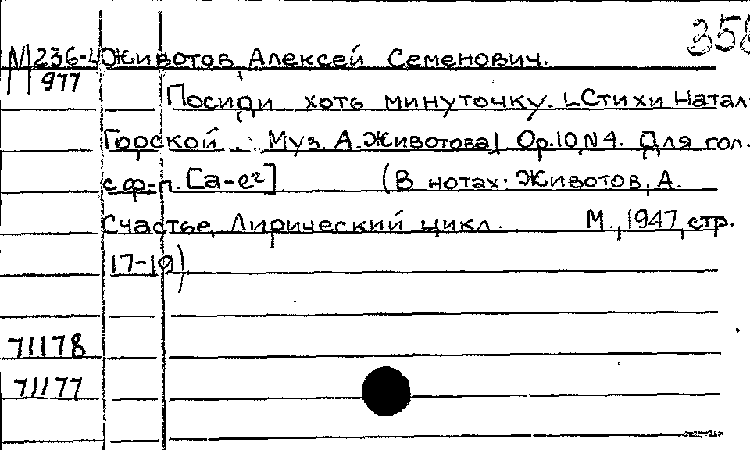 358
М 236-4 Животов, Алексей Семенович.
977
Посиди хоть минуточку. [Стихи Натал
Горской. Муз. А. Животова] Op. 10, N 4. Для гол.
с ф-п. [a-e²] (В нотах: Животов, А.
Счастье. Лирический цикл. М., 1947, стр.
17-19)
71178
71177